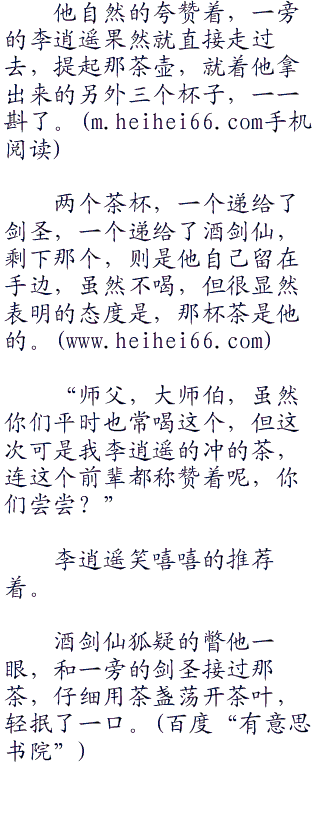 他自然的夸赞着，一旁
的李逍遥果然就直接走过
去，提起那茶壶，就着他拿
出来的另外三个杯子，一一
斟了。(m.heihei66.com手机
阅读)
两个茶杯，一个递给了
剑圣，一个递给了酒剑仙，
剩下那个，则是他自己留在
手边，虽然不喝，但很显然
表明的态度是，那杯茶是他
的。(www.heihei66.com)
“师父，大师伯，虽然
你们平时也常喝这个，但这
次可是我李逍遥的冲的茶，
连这个前辈都称赞着呢，你
们尝尝？”
李逍遥笑嘻嘻的推荐
着。
酒剑仙狐疑的瞥他一
眼，和一旁的剑圣接过那
茶，仔细用茶盏荡开茶叶，
轻抿了一口。(百度“有意思
书院”)